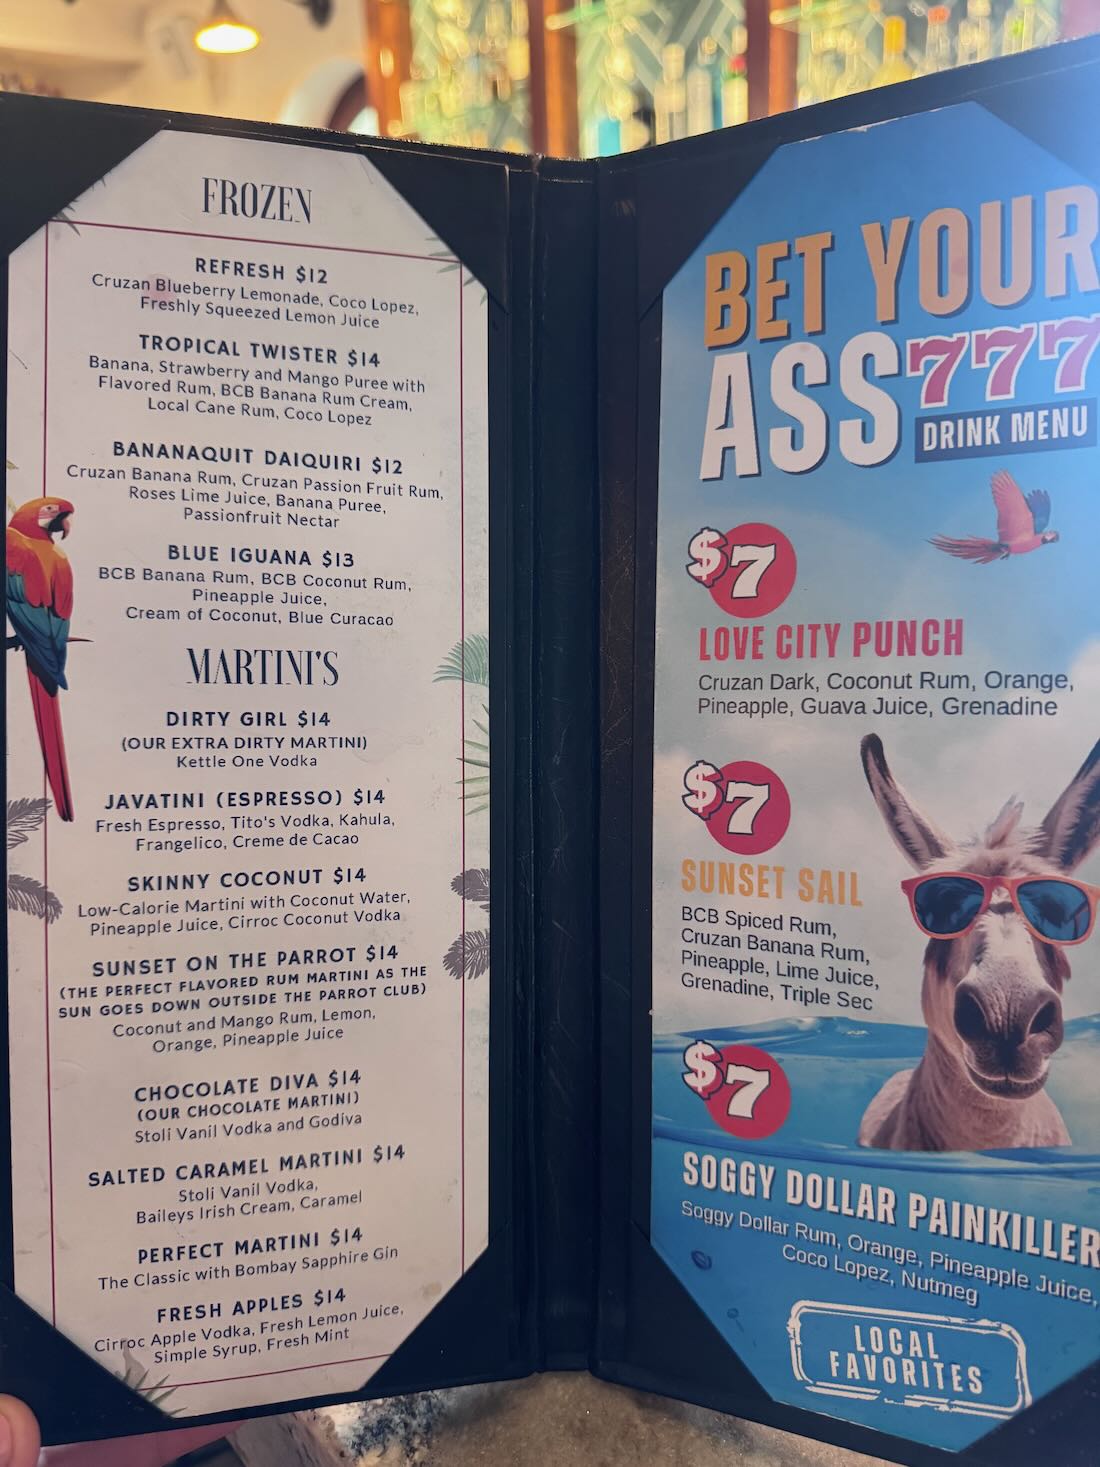 FROZEN
REFRESH $12
Cruzan Blueberry Lemonade, Coco Lopez,
Freshly Squeezed Lemon Juice
TROPICAL TWISTER $14
Banana, Strawberry and Mango Puree with
Flavored Rum, BCB Banana Rum Cream,
Local Cane Rum, Coco Lopez
BANANAQUIT DAIQUIRI $12
Cruzan Banana Rum, Cruzan Passion Fruit Rum,
Roses Lime Juice, Banana Puree,
Passionfruit Nectar
BLUE IGUANA $13
BCB Banana Rum, BCB Coconut Rum,
Pineapple Juice,
Cream of Coconut, Blue Curacao
MARTINI'S
DIRTY GIRL $14
(OUR EXTRA DIRTY MARTINI)
Kettle One Vodka
JAVATINI (ESPRESSO) $14
Fresh Espresso, Tito's Vodka, Kahula,
Frangelico, Creme de Cacao
SKINNY COCONUT $14
Low-Calorie Martini with Coconut Water,
Pineapple Juice, Cirroc Coconut Vodka
SUNSET ON THE PARROT $14
(THE PERFECT FLAVORED RUM MARTINI AS THE
SUN GOES DOWN OUTSIDE THE PARROT CLUB)
Coconut and Mango Rum, Lemon,
Orange, Pineapple Juice
CHOCOLATE DIVA $14
(OUR CHOCOLATE MARTINI)
Stoli Vanil Vodka and Godiva
SALTED CARAMEL MARTINI $14
Stoli Vanil Vodka,
Baileys Irish Cream, Caramel
PERFECT MARTINI $14
The Classic with Bombay Sapphire Gin
FRESH APPLES $14
Cirroc Apple Vodka, Fresh Lemon Juice,
Simple Syrup, Fresh Mint
BET YOUR
ASS 777
DRINK MENU
$7
LOVE CITY PUNCH
Cruzan Dark, Coconut Rum, Orange,
Pineapple, Guava Juice, Grenadine
$7
SUNSET SAIL
BCB Spiced Rum,
Cruzan Banana Rum,
Pineapple, Lime Juice,
Grenadine, Triple Sec
$7
SOGGY DOLLAR PAINKILLER
Soggy Dollar Rum, Orange, Pineapple Juice,
Coco Lopez, Nutmeg
LOCAL
FAVORITES